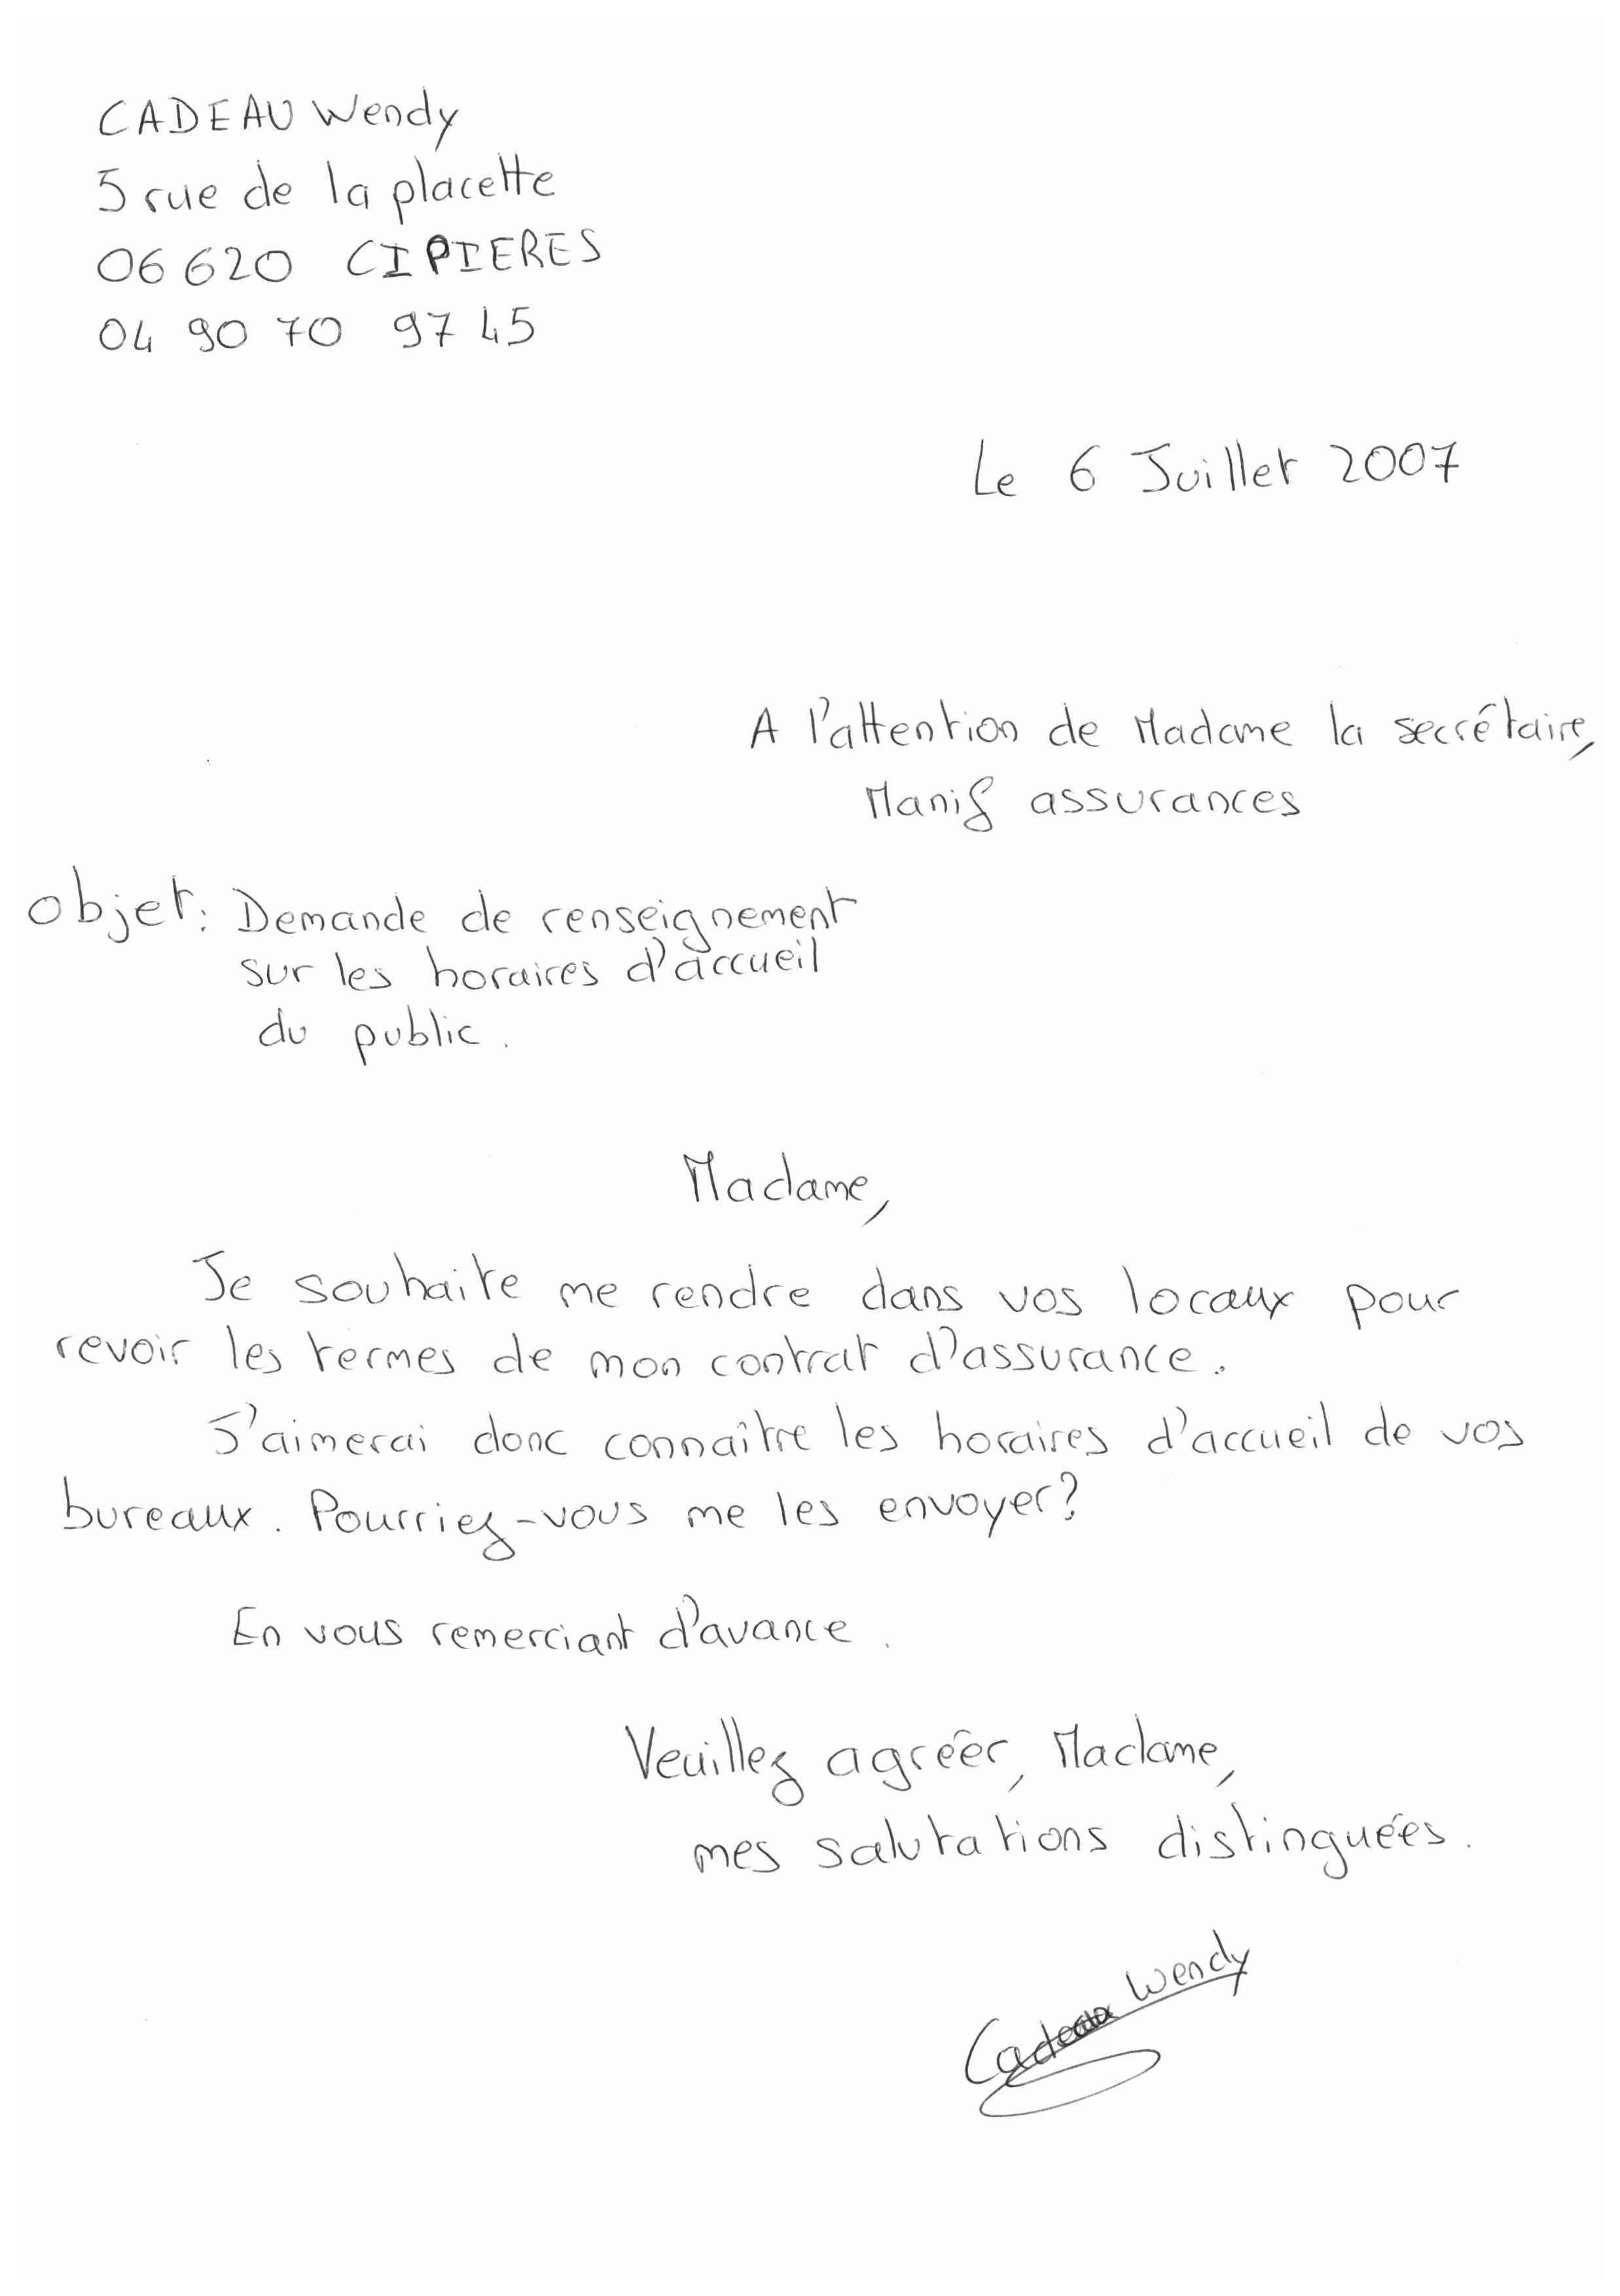 CADEAU Wendy
5 rue de la placette
06620 CIPIERES
04 90 70 97 45
Le 6 Juillet 2007
A l'attention de Madame la secrétaire,
Manif assurances
objet: Demande de renseignement
sur les horaires d'accueil
du public.
Madame,
Je souhaite me rendre dans vos locaux pour
revoir les termes de mon contrat d'assurance.
J'aimerai donc connaître les horaires d'accueil de vos
bureaux. Pourriez-vous me les envoyer?
En vous remerciant d'avance.
Veuillez agréer, Madame,
mes salutations distinguées.
Cadeau Wendy